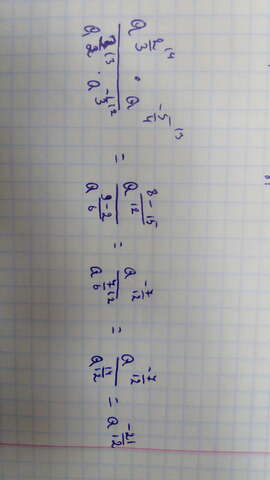 \frac{a^{\frac{2}{3}\backslash 4} \cdot a^{\frac{-5}{4}\backslash 3}}{a^{\frac{3}{2}\backslash 3} \cdot a^{-\frac{1}{3}\backslash 2}} = \frac{a^{\frac{8-15}{12}}}{a^{\frac{9-2}{6}}} = \frac{a^{\frac{-7}{12}}}{a^{\frac{7}{6}\backslash 2}} = \frac{a^{\frac{-7}{12}}}{a^{\frac{14}{12}}} = a^{\frac{-21}{12}}